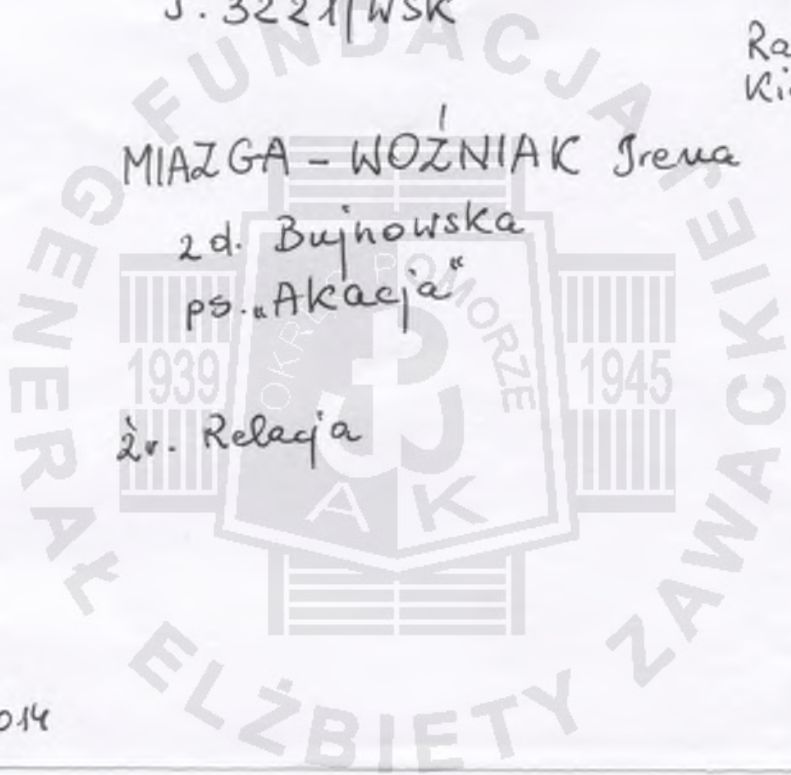 J. 3221/WSK
Ra
Ki
MIAZGA - WOŹNIAK Irena
zd. Bujnowska
ps. „Akacja"
źr. Relacja
014
FUNDACJA GENERAŁ ELŻBIETY ZAWACKIEJ
OKRĘG POMORZE
1939
1945
AK